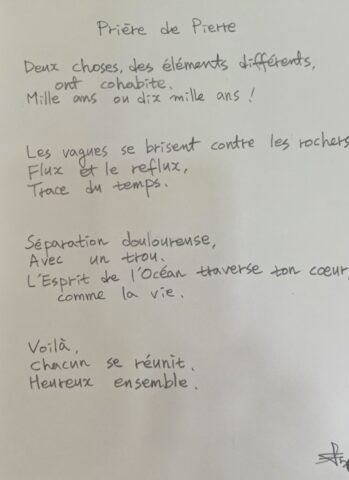 Prière de Pierre
Deux choses, des éléments différents,
ont cohabite.
Mille ans ou dix mille ans !
Les vagues se brisent contre les rochers
Flux et le reflux,
Trace du temps.
Séparation douloureuse,
Avec un trou.
L'Esprit de l'Océan traverse ton cœur,
comme la vie.
Voilà,
chacun se réunit.
Heureux ensemble.